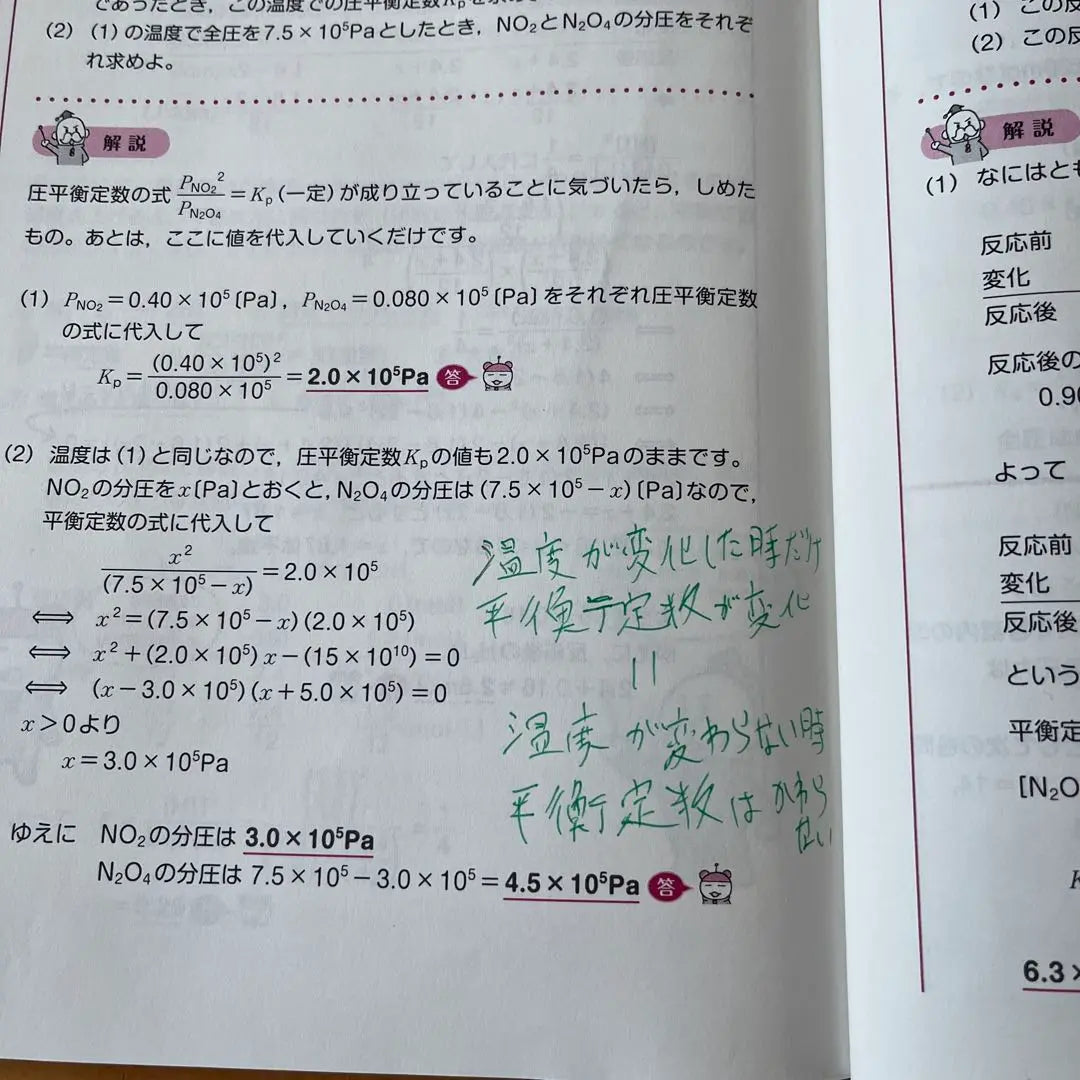 であったとき，この温度での圧平衡定数Kpを求め
(2) (1)の温度で全圧を7.5×10⁵Paとしたとき，NO₂とN₂O₄の分圧をそれぞ
れ求めよ。
解説
圧平衡定数の式 P_NO₂²/P_N₂O₄ = Kp (一定) が成り立っていることに気づいたら，しめた
もの。あとは，ここに値を代入していくだけです。
(1) P_NO₂＝0.40×10⁵〔Pa〕，P_N₂O₄＝0.080×10⁵〔Pa〕をそれぞれ圧平衡定数
の式に代入して
Kp = (0.40×10⁵)²/0.080×10⁵ = 2.0×10⁵Pa 答
(2) 温度は(1)と同じなので，圧平衡定数Kpの値も2.0×10⁵Paのままです。
NO₂の分圧をx〔Pa〕とおくと，N₂O₄の分圧は(7.5×10⁵－x)〔Pa〕なので，
平衡定数の式に代入して
x²/(7.5×10⁵－x) ＝2.0×10⁵
⟺ x²＝(7.5×10⁵－x)(2.0×10⁵)
⟺ x²＋(2.0×10⁵)x－(15×10¹⁰)＝0
⟺ (x－3.0×10⁵)(x＋5.0×10⁵)＝0
x＞0より
x＝3.0×10⁵Pa
ゆえに NO₂の分圧は 3.0×10⁵Pa
N₂O₄の分圧は 7.5×10⁵－3.0×10⁵＝4.5×10⁵Pa 答
温度が変化した時だけ
平衡定数が変化
||
温度が変わらない時
平衡定数はかわら
ない
(1) この反
(2) この反
解説
(1) なにはとも
反応前
変化
反応後
反応後の
0.90
よって
反応前
変化
反応後
という
平衡定
[N₂O
K
6.3×